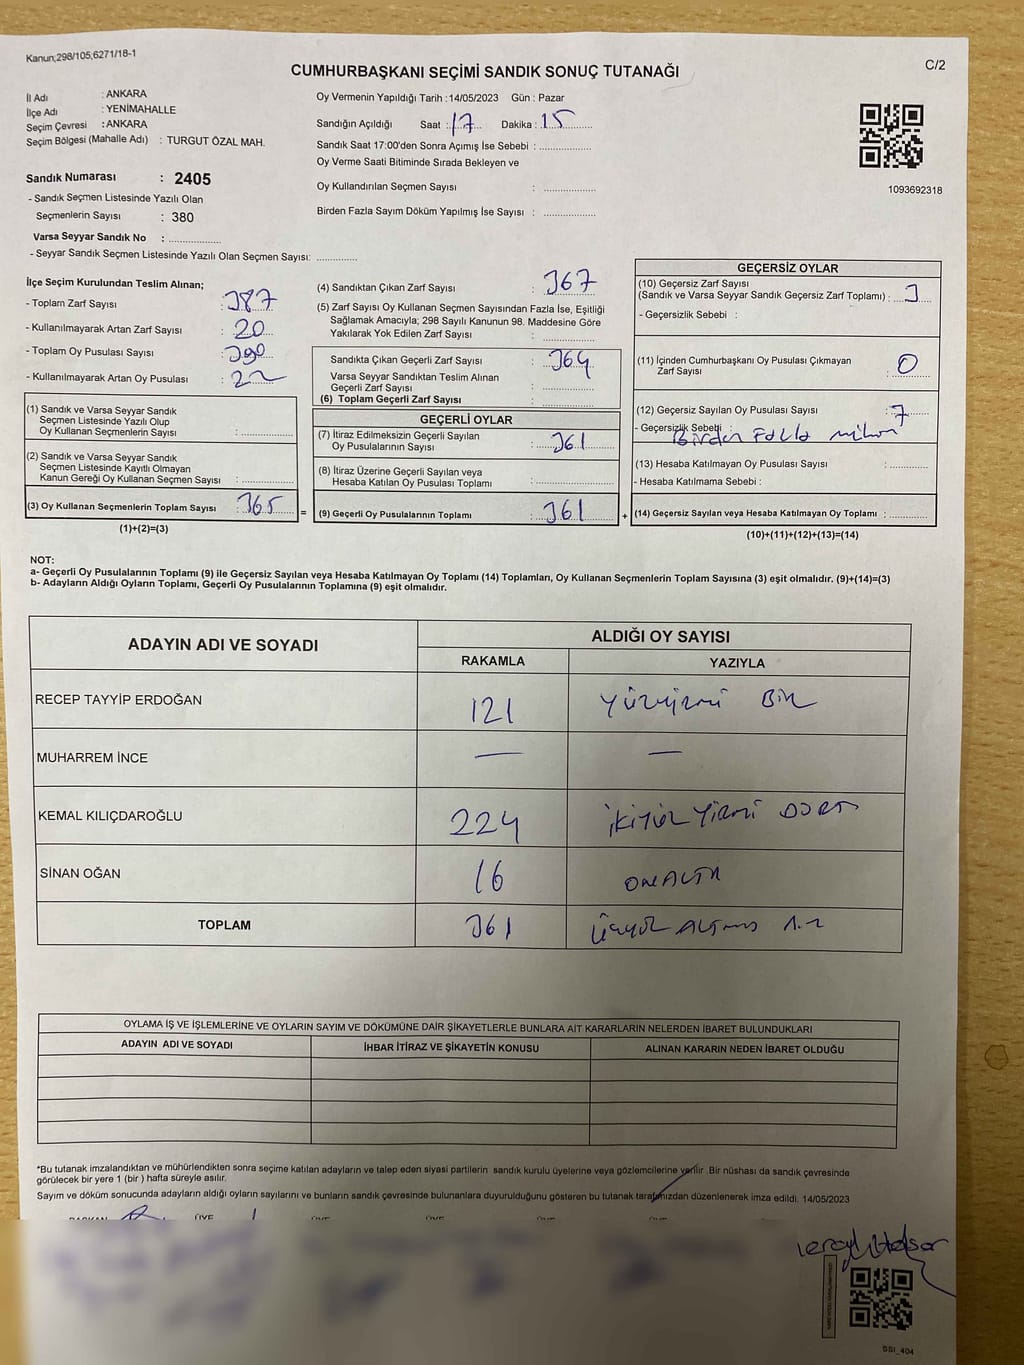 Kanun;298/105;6271/18-1
C/2
CUMHURBAŞKANI SEÇİMİ SANDIK SONUÇ TUTANAĞI
İl Adı : ANKARA
İlçe Adı : YENİMAHALLE
Seçim Çevresi : ANKARA
Seçim Bölgesi (Mahalle Adı) : TURGUT ÖZAL MAH.
Sandık Numarası : 2405
- Sandık Seçmen Listesinde Yazılı Olan
Seçmenlerin Sayısı : 380
Varsa Seyyar Sandık No : ..............
- Seyyar Sandık Seçmen Listesinde Yazılı Olan Seçmen Sayısı: ............
Oy Vermenin Yapıldığı Tarih : 14/05/2023 Gün : Pazar
Sandığın Açıldığı Saat : 17 Dakika : 15
Sandık Saat 17:00'den Sonra Açımış İse Sebebi : ...............
Oy Verme Saati Bitiminde Sırada Bekleyen ve
Oy Kullandırılan Seçmen Sayısı : ...............
Birden Fazla Sayım Döküm Yapılmış İse Sayısı : ...............
1093692318
İlçe Seçim Kurulundan Teslim Alınan;
- Toplam Zarf Sayısı : 387
- Kullanılmayarak Artan Zarf Sayısı : 20
- Toplam Oy Pusulası Sayısı : 390
- Kullanılmayarak Artan Oy Pusulası : 22
(1) Sandık ve Varsa Seyyar Sandık
Seçmen Listesinde Yazılı Olup
Oy Kullanan Seçmenlerin Sayısı : ...............
(2) Sandık ve Varsa Seyyar Sandık
Seçmen Listesinde Kayıtlı Olmayan
Kanun Gereği Oy Kullanan Seçmen Sayısı : ...............
(3) Oy Kullanan Seçmenlerin Toplam Sayısı : 365
(1)+(2)=(3)
=
(4) Sandıktan Çıkan Zarf Sayısı : 367
(5) Zarf Sayısı Oy Kullanan Seçmen Sayısından Fazla İse, Eşitliği
Sağlamak Amacıyla; 298 Sayılı Kanunun 98. Maddesine Göre
Yakılarak Yok Edilen Zarf Sayısı : ...............
Sandıkta Çıkan Geçerli Zarf Sayısı : 364
Varsa Seyyar Sandıktan Teslim Alınan
Geçerli Zarf Sayısı : ...............
(6) Toplam Geçerli Zarf Sayısı : ...............
GEÇERLİ OYLAR
(7) İtiraz Edilmeksizin Geçerli Sayılan
Oy Pusulalarının Sayısı : 361
(8) İtiraz Üzerine Geçerli Sayılan veya
Hesaba Katılan Oy Pusulası Toplamı : ...............
(9) Geçerli Oy Pusulalarının Toplamı : 361
+
GEÇERSİZ OYLAR
(10) Geçersiz Zarf Sayısı
(Sandık ve Varsa Seyyar Sandık Geçersiz Zarf Toplamı) : 3
- Geçersizlik Sebebi :
(11) İçinden Cumhurbaşkanı Oy Pusulası Çıkmayan
Zarf Sayısı : 0
(12) Geçersiz Sayılan Oy Pusulası Sayısı : 7
- Geçersizlik Sebebi : Birden Fazla mühür
(13) Hesaba Katılmayan Oy Pusulası Sayısı : ...............
- Hesaba Katılmama Sebebi :
(14) Geçersiz Sayılan veya Hesaba Katılmayan Oy Toplamı : ...............
(10)+(11)+(12)+(13)=(14)
NOT:
a- Geçerli Oy Pusulalarının Toplamı (9) ile Geçersiz Sayılan veya Hesaba Katılmayan Oy Toplamı (14) Toplamları, Oy Kullanan Seçmenlerin Toplam Sayısına (3) eşit olmalıdır. (9)+(14)=(3)
b- Adayların Aldığı Oyların Toplamı, Geçerli Oy Pusulalarının Toplamına (9) eşit olmalıdır.
ADAYIN ADI VE SOYADI
ALDIĞI OY SAYISI
RAKAMLA YAZIYLA
RECEP TAYYİP ERDOĞAN 121 Yüzyirmi Bir
MUHARREM İNCE — —
KEMAL KILIÇDAROĞLU 224 İkiyüz Yirmi Dört
SİNAN OĞAN 16 onaltı
TOPLAM 361 Üçyüz Altmış Bir
OYLAMA İŞ VE İŞLEMLERİNE VE OYLARIN SAYIM VE DÖKÜMÜNE DAİR ŞİKAYETLERLE BUNLARA AİT KARARLARIN NELERDEN İBARET BULUNDUKLARI
ADAYIN ADI VE SOYADI İHBAR İTİRAZ VE ŞİKAYETİN KONUSU ALINAN KARARIN NEDEN İBARET OLDUĞU
*Bu tutanak imzalandıktan ve mühürlendikten sonra seçime katılan adayların ve talep eden siyasi partilerin sandık kurulu üyelerine veya gözlemcilerine verilir .Bir nüshası da sandık çevresinde
görülecek bir yere 1 (bir ) hafta süreyle asılır.
Sayım ve döküm sonucunda adayların aldığı oyların sayılarını ve bunların sandık çevresinde bulunanlara duyurulduğunu gösteren bu tutanak tarafımızdan düzenlenerek imza edildi. 14/05/2023
BAŞKAN ÜYE ÜYE ÜYE ÜYE ÜYE
SSI_404